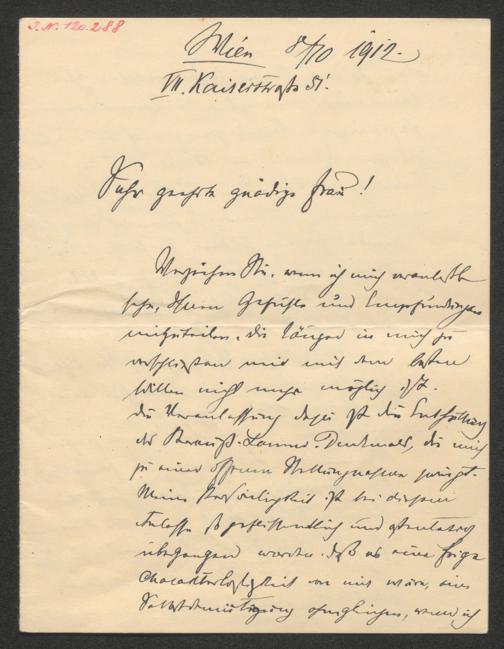 J. N. 120.288
Wien 8/10 1912.
VII. Kaiserstraße 81.
Sehr geehrte gnädige Frau!
Verzeihen Sie, wenn ich mich veranlaßt
sehe, Ihnen Gefühle und Empfindungen
mitzuteilen, die länger in mich zu
verschließen mir mit dem besten
Willen nicht mehr möglich ist.
Die Veranlassung dazu ist die Enthüllung
des Strauß-Lanner-Denkmals, die mich
zu einer offenen Stellungnahme zwingt.
Meine Persönlichkeit ist bei diesem
Anlasse so geflissentlich und ostentativ
übergangen worden, daß es eine feige
Charakterlosigkeit von mir wäre, eine
Selbstdemütigung ohnegleichen, wenn ich